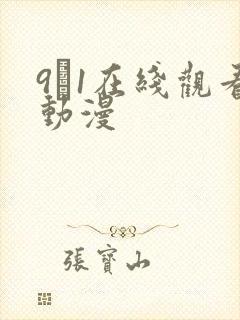 9�1在綫觀看
動漫
張寶山